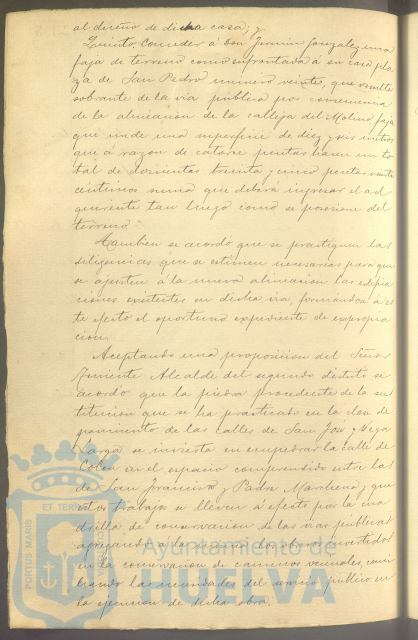 al dueño de dicha casa; y
Quinto. Conceder á Don Fermin Gonzalez una
faja de terreno como enfrontada á su casa pla
za de San Pedro numero veinte, que resulta
sobrante de la via pública por consecuencia
de la alineacion de la calleja del Molino, faja
que mide una superficie de diez y seis metros
que á razon de catorce pesetas hacen un to
tal de doscientas treinta y cinco pesetas veinte
centimos suma que deberá ingresar el ad
quirente tan luego como se posesione del
terreno.
Tambien se acordó que se practiquen las
diligencias que se estimen necesarias para que
se ajusten á la nueva alineacion las edifica
ciones existentes en dicha via, formandose á es
te efecto el oportuno expediente de expropia
cion.
Aceptando una proposicion del Señor
Teniente Alcalde del segundo distrito se
acordó que la piedra procedente de la sus
titucion que se ha practicado en la
de las calles de San José y Vega
Larga se invierta en empedrar la calle de
Colon en el espacio comprendido entre las
de San Francisco y Padre Marchena, y que
estos trabajos se lleven á efecto por la cua
drilla de conservacion de las vias públicas
agregando á la misma los obreros invertidos
en la conservacion de caminos vecinales,
las necesidades del servicio público con
la ejecucion de dicha obra.
PORTUS MARIS ET TERRAE CUSTODIA
Ayuntamiento de
HUELVA